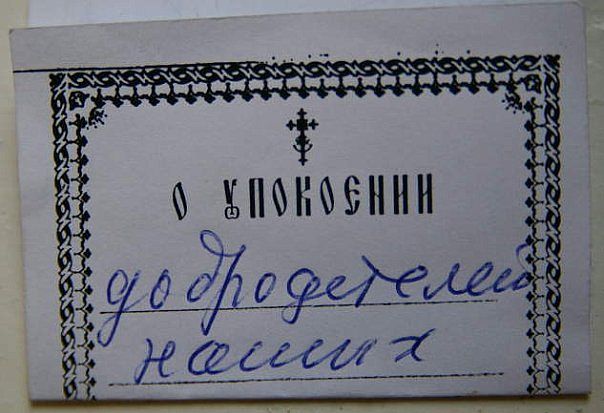 О УПОКОЕНИИ
добродетелей
наших